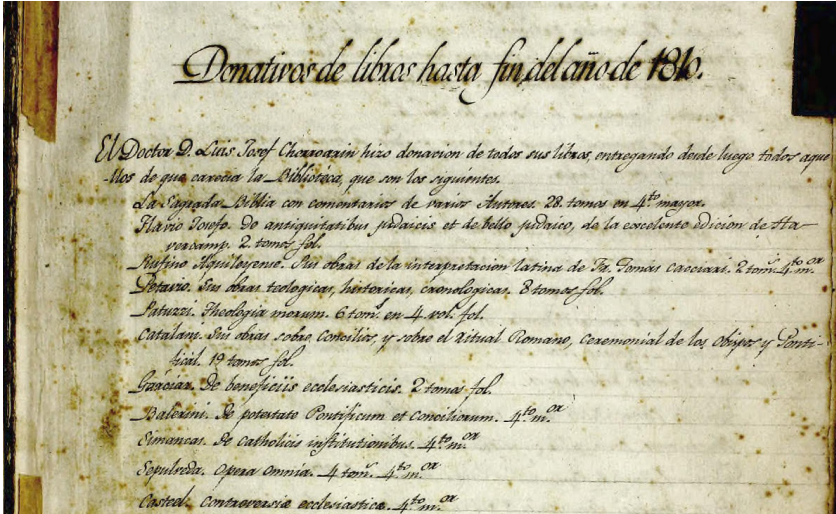 Donativos de libros hasta fin del año de 1810.
El Doctor D. Luis Josef Chorroarin hizo donacion de todos sus libros, entregando desde luego todos aque-
llos de que carecia la Biblioteca, que son los siguientes.
La Sagrada Biblia con comentarios de varios Autores. 28. tomos en 4.to mayor.
Flavio Josefo. De antiquitatibus judaicis et de bello judaico, de la excelente edicion de Ha-
vercamp. 2. tomos fol.
Rufino Aquileyense. Sus obras de la interpretacion latina de Fr. Tomas Cacciari. 2 tom.s 4.to m.or
Petavio. Sus obras teologicas, historicas, cronologicas. 8 tomos fol.
Patuzzi. Theologia morum. 6 tom.s en 4. vol. fol.
Catalani. Sus obras sobre Concilios, y sobre el Ritual Romano, Ceremonial de los Obispos y Ponti-
fical. 19 tomos fol.
Garcias. De beneficiis ecclesiasticis. 2 tomos fol.
Balerini. De potestate Pontificum et Conciliorum. 4.to m.or
Simancas. De catholicis institutionibus. 4.to m.or
Sepulveda. Opera omnia. 4 tom.s 4.to m.or
Casteel. Controversiæ ecclesiasticæ. 4.to m.or